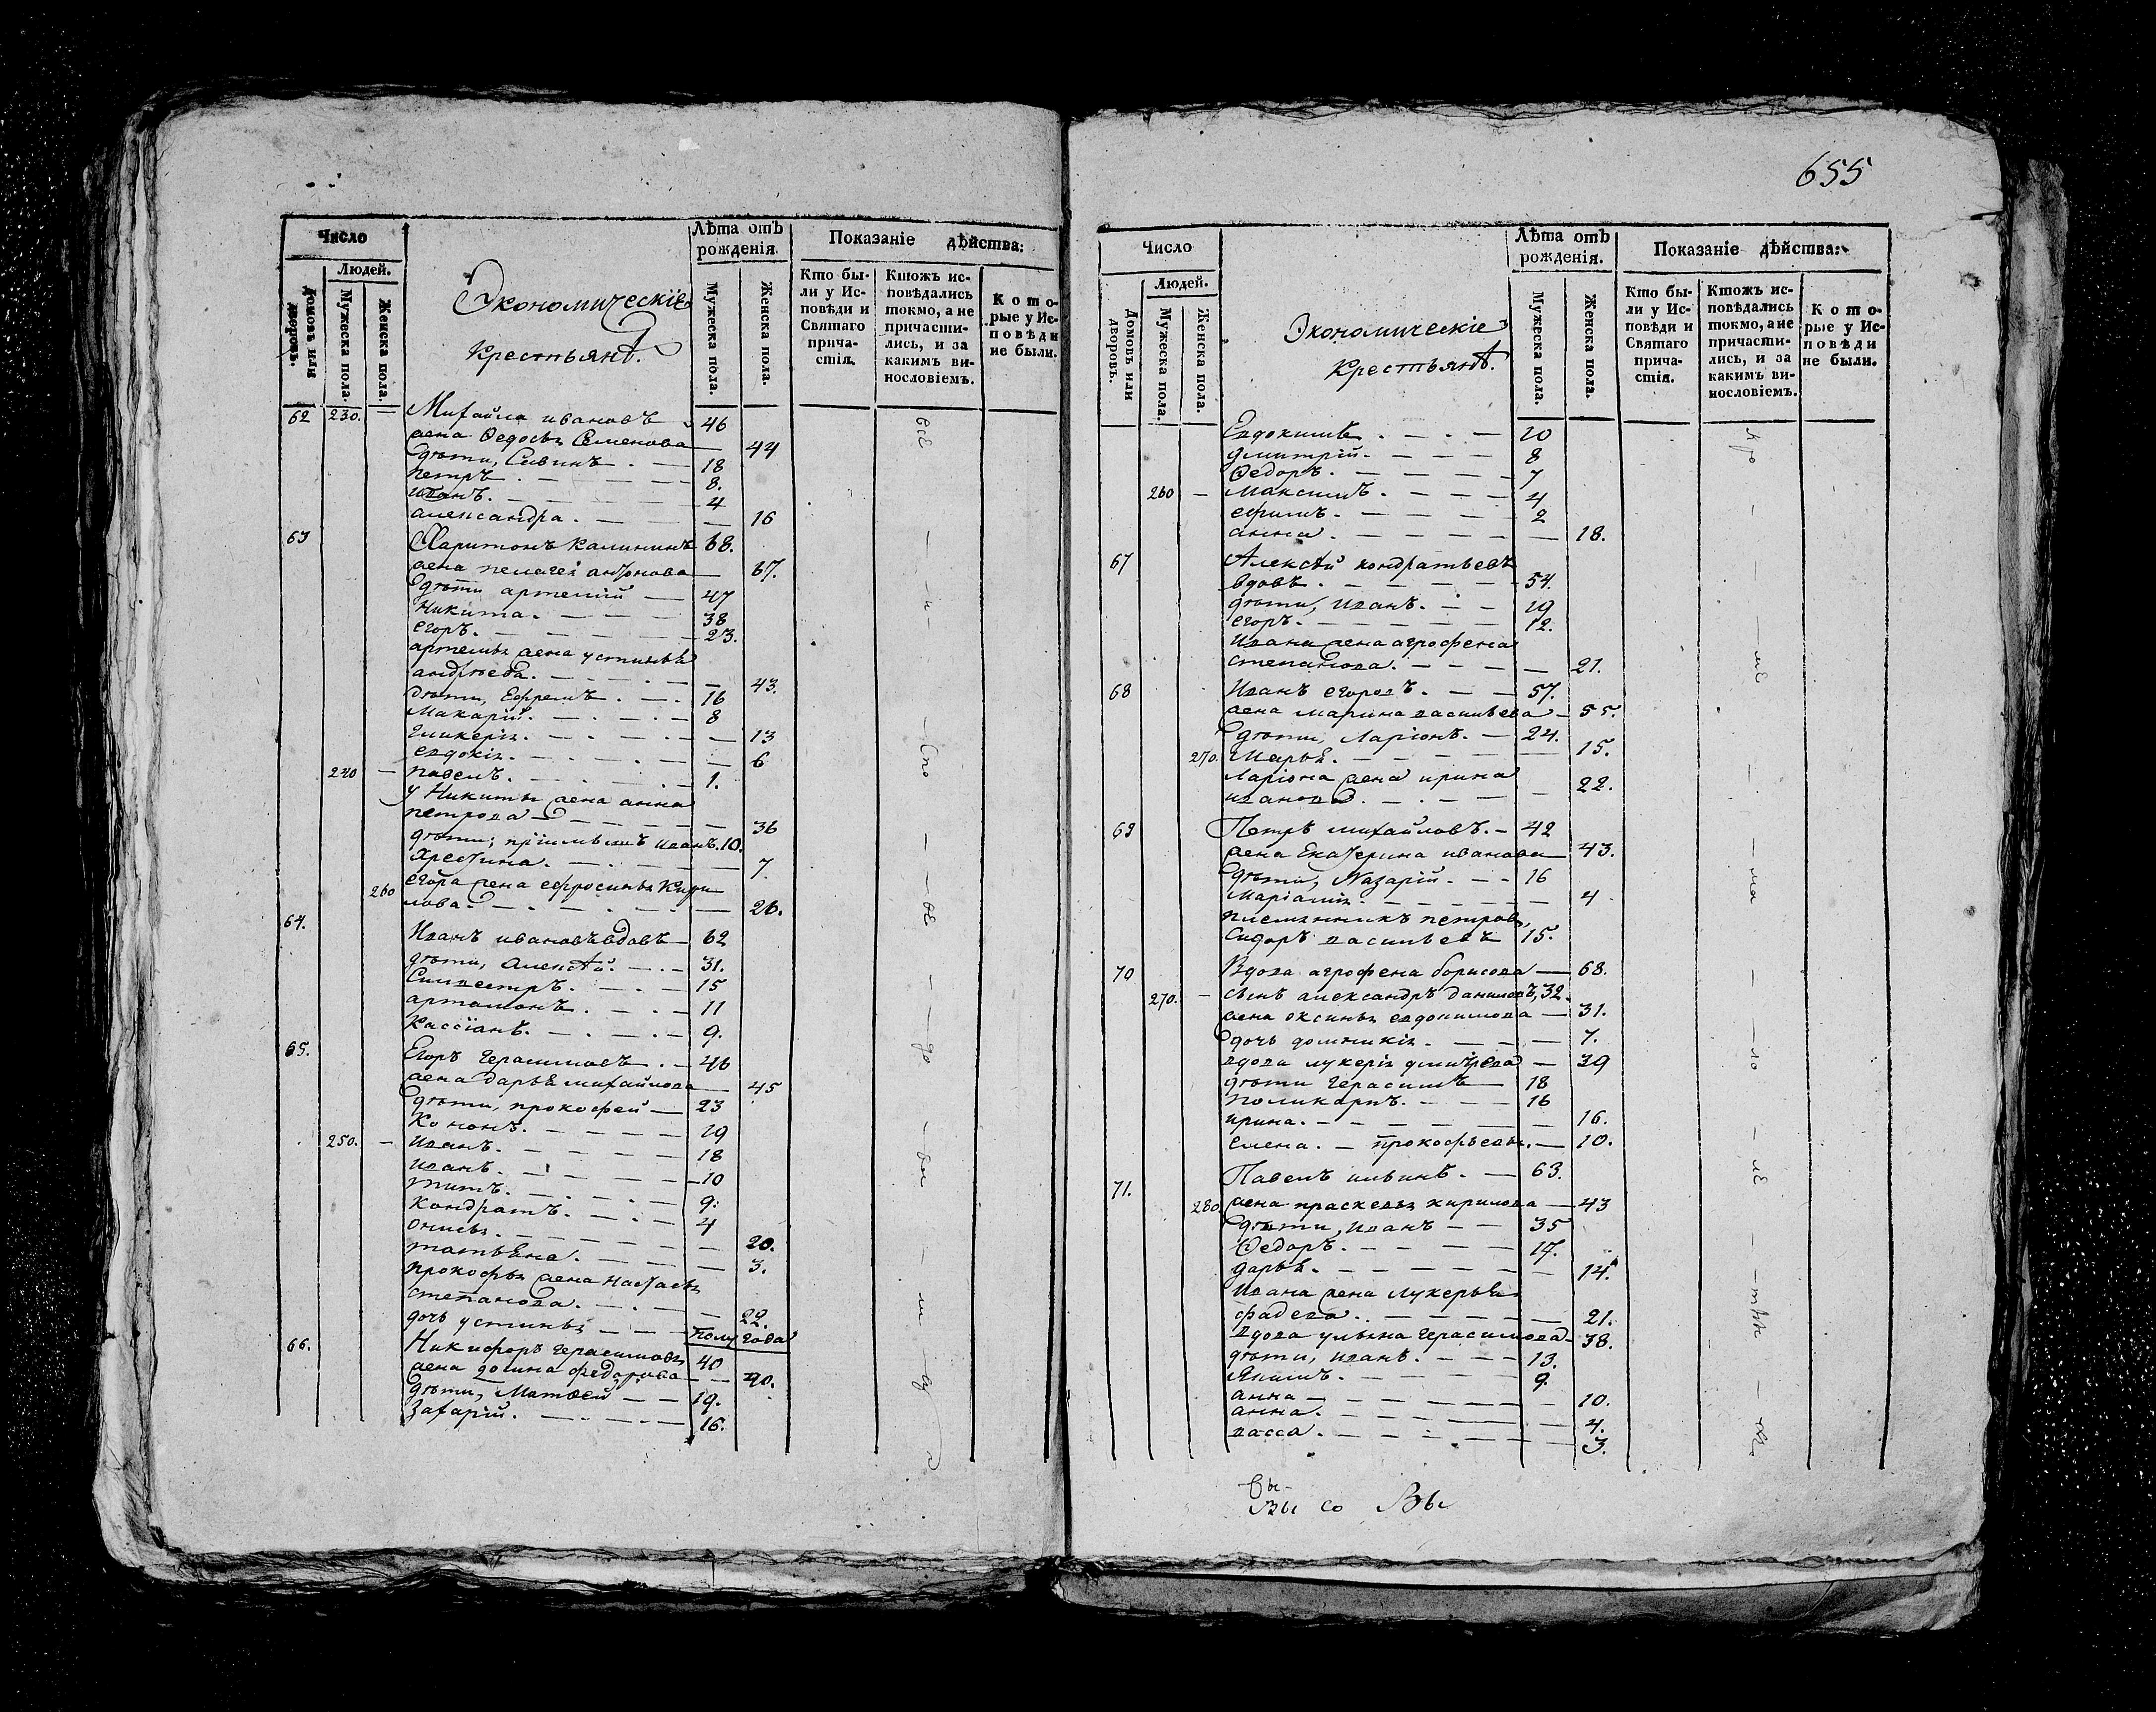 Число
Людей.
Домовъ или дворовъ.
Мужеска пола.
Женска пола.
Экономическіе
Крестьянѣ.
Лѣта отъ рожденія.
Мужеска пола.
Женска пола.
Показаніе дѣйства:
Кто бы-
ли у Ис-
повѣди и
Святаго
прича-
стія.
Ктожъ ис-
повѣдались
токмо, а не
причасти-
лись, и за
какимъ ви-
нословіемъ.
Кото-
рые у Ис-
повѣди
не были.
62 230. — Михайла ивановъ 46
жена Ѳедосья Семенова 44
дѣти, Савинъ 18
петръ 8.
иванъ. 4
александра. 16
63 Харитонъ калининъ 68.
жена пелагея антонова 67.
дѣти артемій 47
Никита. 38
егоръ. 23.
артемья жена устинья
андреева. 43.
дѣти, Ефремъ 16
Макарій. 8
гликерія. 13
евдокія. 6
240 — павелъ. 1.
у Никиты жена анна
петрова 36
дѣти; пріимышъ иванъ. 10.
Христина. 7
егора жена ефросинья Кири
260 лова. 26.
64. Иванъ ивановъ вдовъ 62
дѣти, алексѣй. 31.
Силвестръ. 15
артамонъ. 11
Кассіанъ. 9.
65. Егоръ герасимовъ 46
жена дарья михайлова 45
дѣти, прокофей 23
Кононъ. 19
250. — иванъ. 18
иванъ. 10
титъ. 9.
Кондратъ. 4
онисья. 20.
татьяна. 3.
прокофья жена настасья
степанова. 22.
дочь устинья полу года
66. Никифоръ герасимовъ 40
жена домна федорова 40.
дѣти, Матѳей 19.
Захарій. 16.
655
Число
Людей.
Домовъ или дворовъ.
Мужеска пола.
Женска пола.
Экономическіе
Крестьянѣ.
Лѣта отъ рожденія.
Мужеска пола.
Женска пола.
Показаніе дѣйства:
Кто бы-
ли у Ис-
повѣди и
Святаго
прича-
стія.
Ктожъ ис-
повѣдались
токмо, а не
причасти-
лись, и за
какимъ ви-
нословіемъ.
Кото-
рые у Ис-
повѣди
не были.
Евдокимъ 10
дмитрій. 8
Ѳедоръ. 7
260 — Максимъ. 4
ефимъ. 2
анна. 18.
67 Алексѣй кондратьевъ
вдовъ. 54.
дѣти, иванъ. 19
егоръ. 12.
ивана жена агрофена
степанова. 21.
68 Иванъ егоровъ. 57.
жена марина васильева 55.
дѣти, Ларіонъ. 24.
270. Марья. 15.
Ларіона жена ирина
иванова. 22.
69 Петръ михайловъ. 42
жена Екатерина иванова 43.
дѣти, Назарій. 16
Маріамія. 4
племянникъ петровъ,
Сидоръ васильевъ 15.
70 Вдова агрофена борисова 68.
270. — сынъ александръ даниловъ, 32.
жена оксинья евдокимова 31.
дочь домникія. 7.
вдова лукерія дмитрева 39
дѣти герасимъ 18
поликарпъ. 16
ирина. 16.
елена. — прокофьевы. 10.
71. Павелъ ильинъ. 63.
280. жена прасковья кирилова 43
дѣти, иванъ 35
Ѳедоръ. 17.
дарья. 14.
ивана жена лукерья
фадева. 21.
вдова ульяна герасимова 38.
дѣти, иванъ. 13.
Якимъ. 9.
анна 10.
анна. 4.
васса. 3.
вы-
Вы со Вы